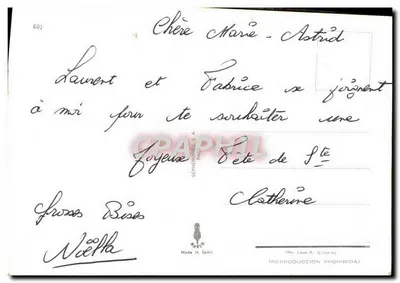 601
Chère Marie-Astrid
Laurent et Fabrice se joignent
à moi pour te souhaiter une
CPAPHIL.COM
Joyeuse Fête de Ste
Catherine
Grosses Bises
Noëlla
Made in Spain
(REPRODUCCION PROHIBIDA)